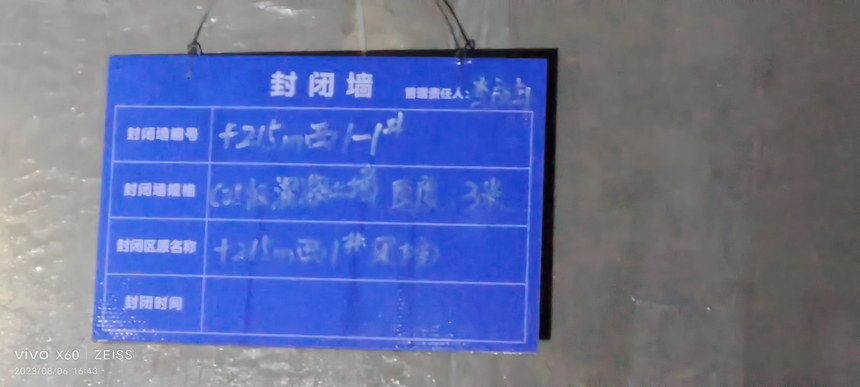 封闭墙
管理责任人:
封闭墙编号 +215m西1-1#
封闭墙规格 混凝土墙 厚度 3米
封闭区域名称 +215m西1#
封闭时间
vivo X60 | ZEISS
2023/08/06 16:43